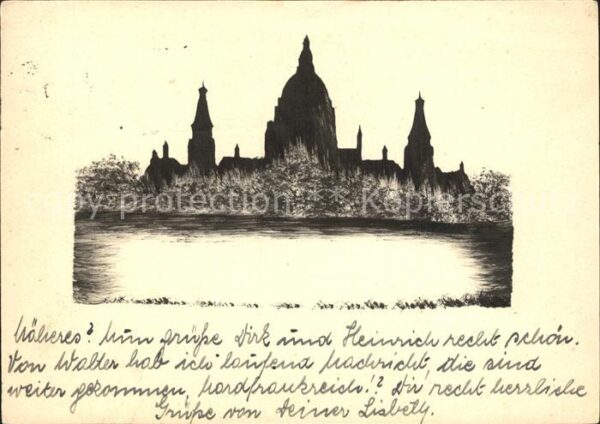 copy protection Kopierschutz
Näheres? Nun grüße Dirk und Heinrich recht schön.
Von Walter hab ich laufend Nachricht, die sind
weiter gekommen, Nordfrankreich!? Dir recht herzliche
Grüße von Deiner Lisbeth.